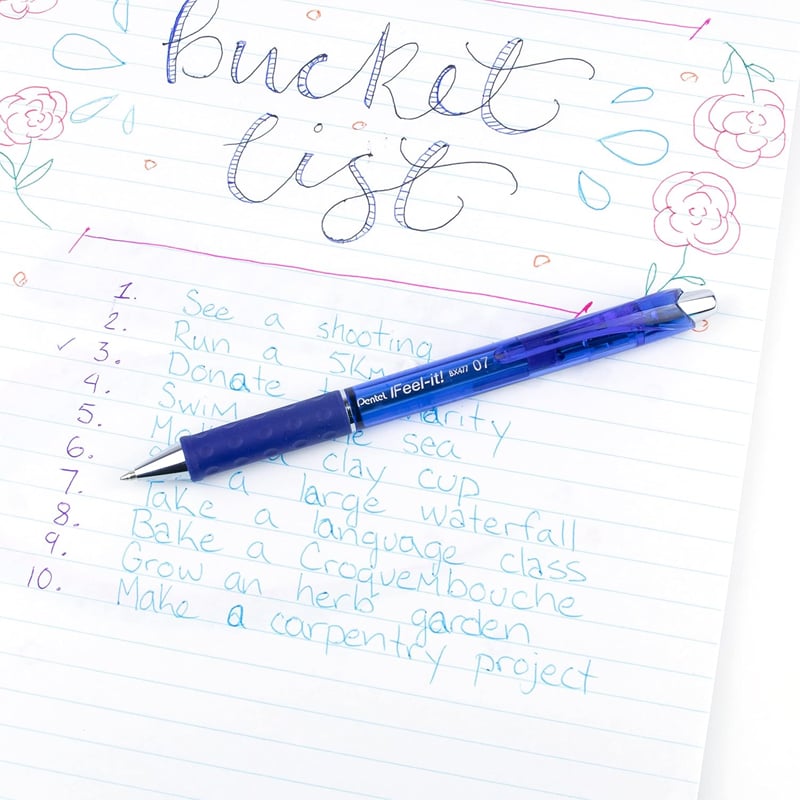 bucket
list
1. See a shooting
2. Run a 5Km
✓ 3. Donate arity
4. Swim sea
5. clay cup
6. a large waterfall
7. Take a language class
8. Bake a Croquembouche
9. Grow an herb garden
10. Make a carpentry project
Pentel IFeel-it! BX477 07